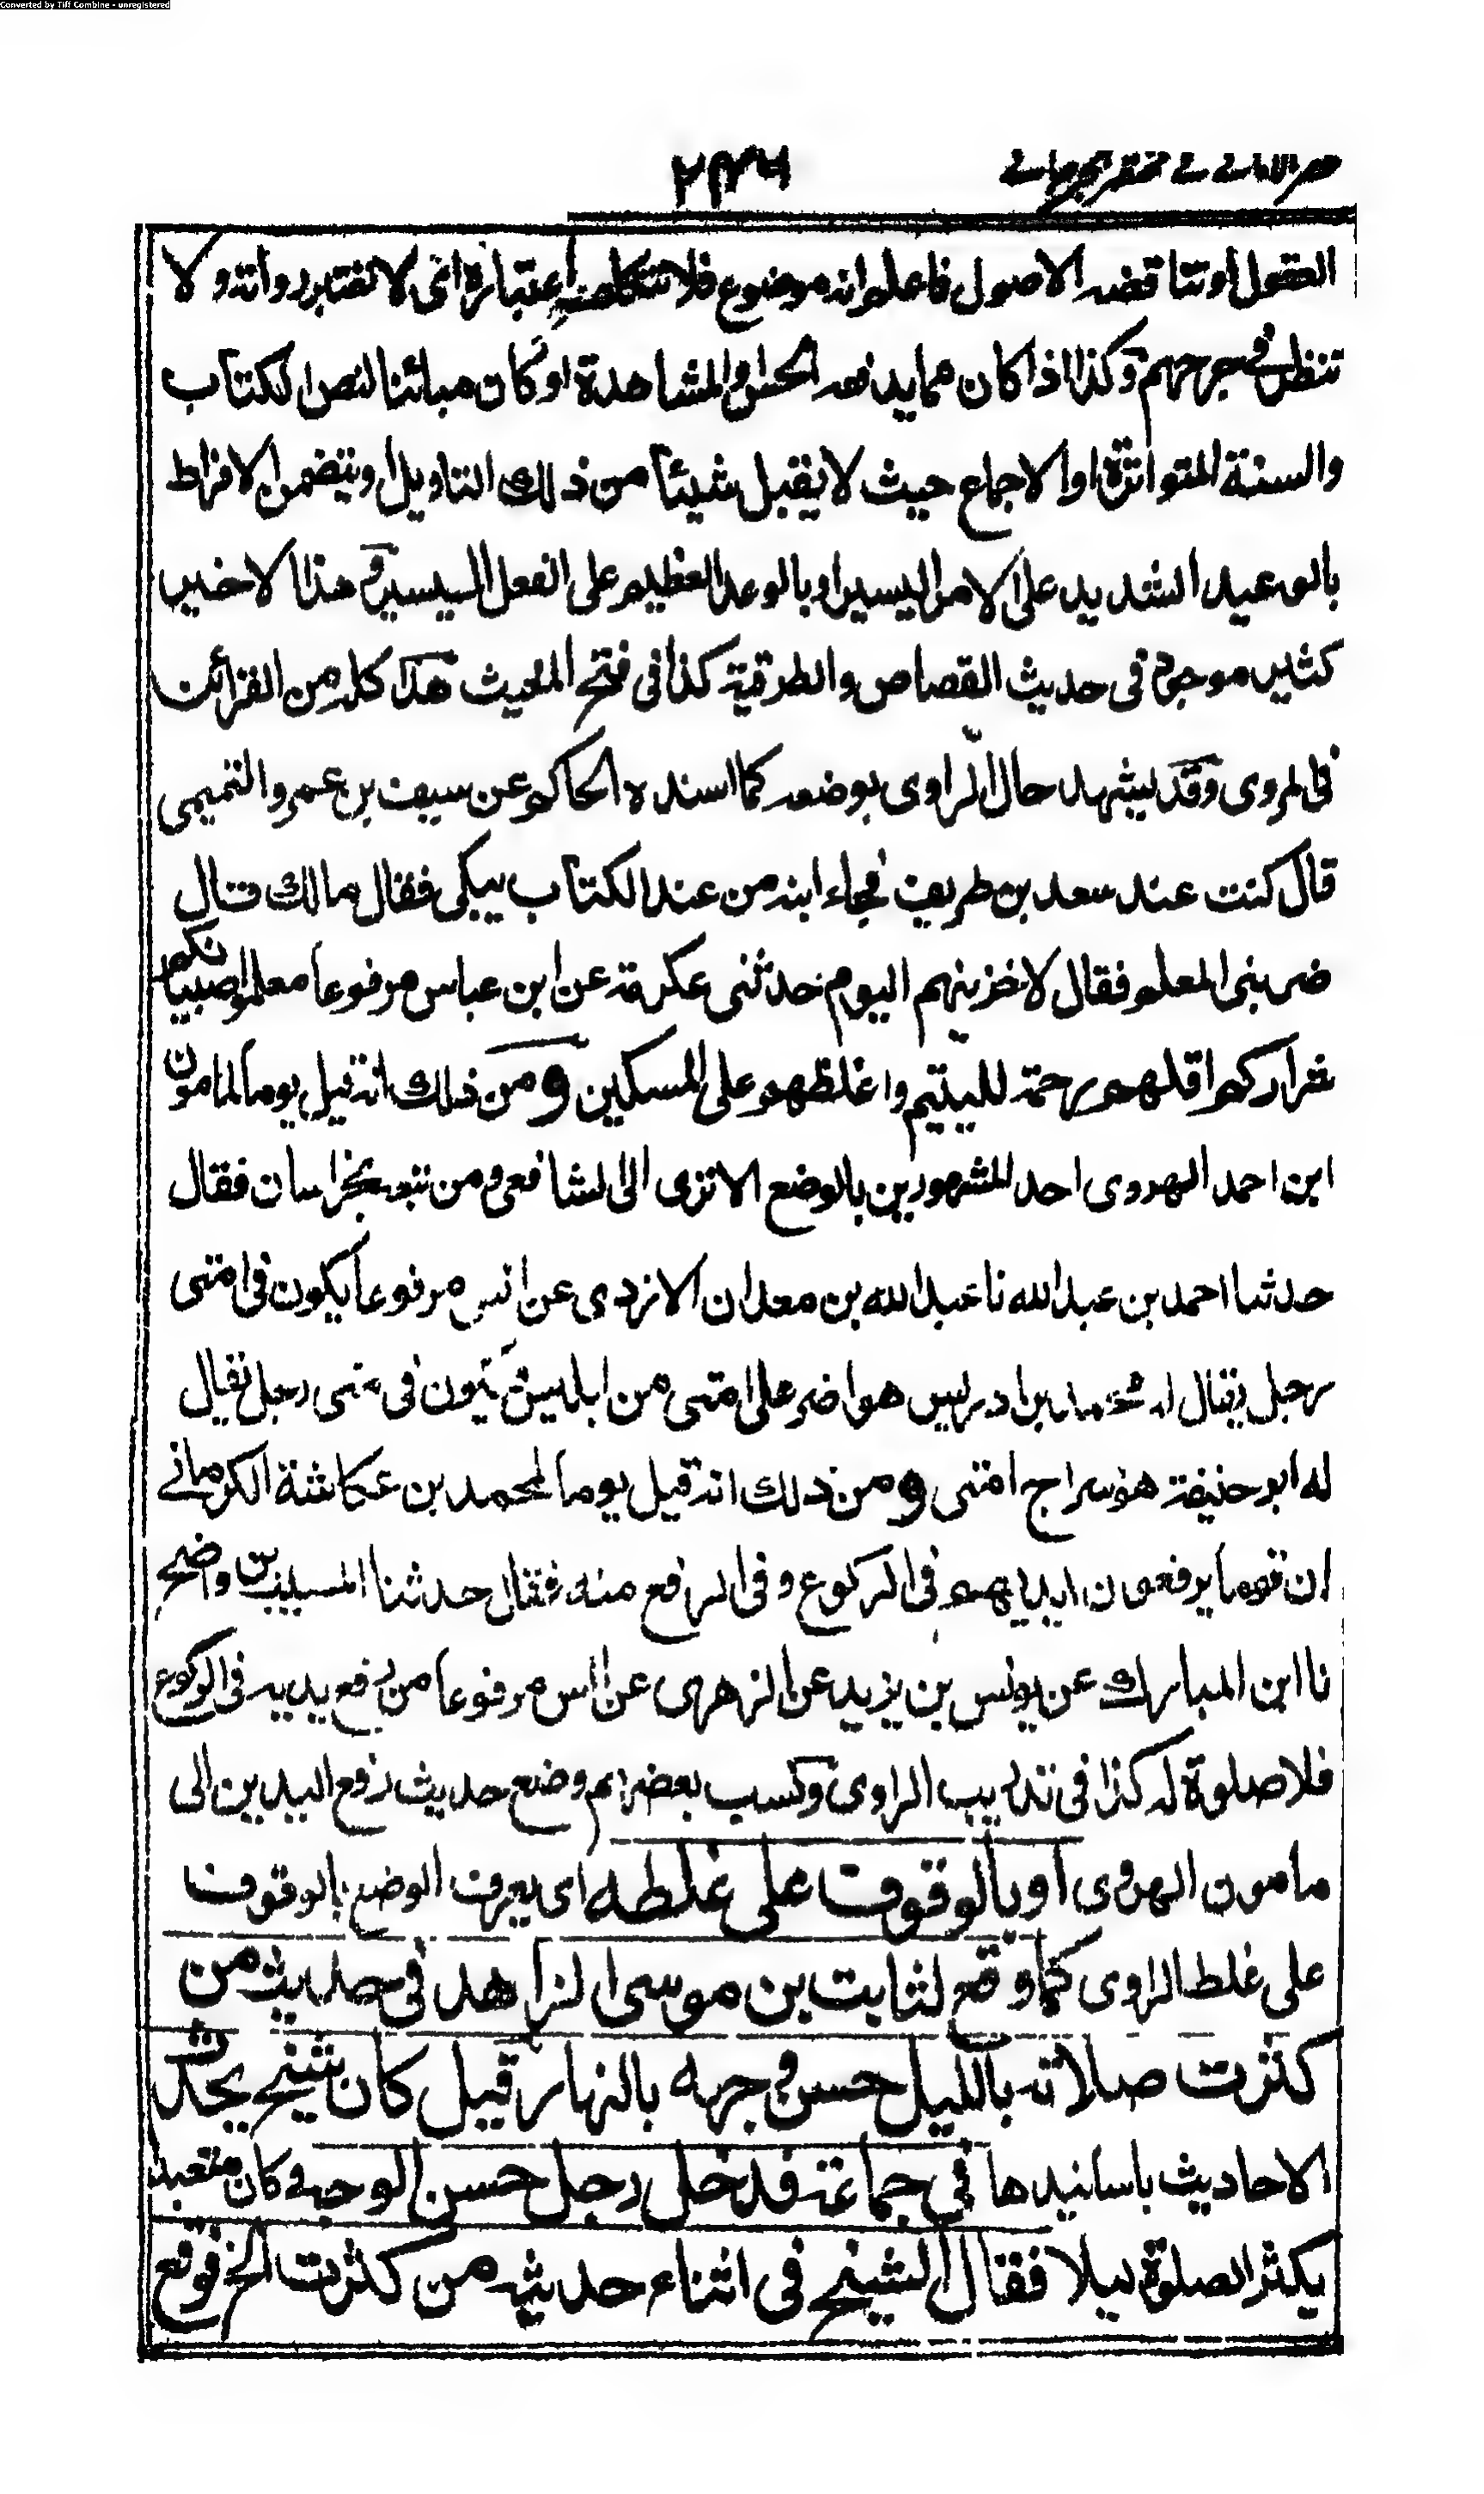 Converted by Tiff Combine - unregistered
ظفر الامانی فی مختصر الجرجانی
٢٣٤
العقول او تناقضه الاصول فاعلم انه موضوع فلا تتكلف اعتباره ای لا تعتبر رواته ولا
تنظر فی جرحهم وكذا اذا كان مما يدفعه الحس والمشاهدة او كان مبائنا لنص الكتاب
والسنة المتواترة او الاجماع حيث لا يقبل شيئا من ذلك التاويل او يتضمن الافراط
بالوعيد الشديد على الامر اليسير او بالوعد العظيم على الفعل اليسير وهذا الاخير
كثير موجود فی حديث القصاص والطرقية كذا فی فتح المغيث هذا كله من القرائن
فی المروی وقد يشهد حال الراوی بوضعه كما اسنده الحاكم عن سيف بن عمرو التميمی
قال كنت عند سعد بن طريف فجاء ابنه من عند الكتاب يبكی فقال مالك قال
ضربنی المعلم فقال لاخزينهم اليوم حدثنی عكرمة عن ابن عباس مرفوعا معلموا صبيانكم
شراركم اقلهم رحمة لليتيم واغلظهم على المسكين ومن ذلك انه قيل يوما لمامون
ابن احمد الهروی احد المشهورين بالوضع الا تری الی الشافعی ومن تبعه بخراسان فقال
حدثنا احمد بن عبد الله نا عبد الله بن معدان الازدی عن انس مرفوعا يكون فی امتی
رجل يقال له محمد بن ادريس هو اضر على امتی من ابليس ويكون فی امتی رجل يقال
له ابو حنيفة هو سراج امتی ومن ذلك انه قيل يوما لمحمد بن عكاشة الكرمانی
ان قوما يرفعون ايديهم فی الركوع وفی الرفع منه فقال حدثنا المسيب بن واضح
نا ابن المبارك عن يونس بن يزيد عن الزهری عن انس مرفوعا من رفع يديه فی الركوع
فلا صلوة له كذا فی تدريب الراوی ونسب بعضهم وضع حديث رفع اليدين الی
مامون الهروی او بالوقوف على غلطه ای يعرف الوضع بالوقوف
على غلط الراوی كما وقع لثابت بن موسى الزاهد فی حديث من
كثرت صلاته بالليل حسن وجهه بالنهار قيل كان شيخ يحدث
الاحاديث باسانيدها فی جماعة فدخل رجل حسن الوجه وكان متعبد
يكثر الصلوة ليلا فقال الشيخ فی اثناء حديثه من كثرت الخ فوقع